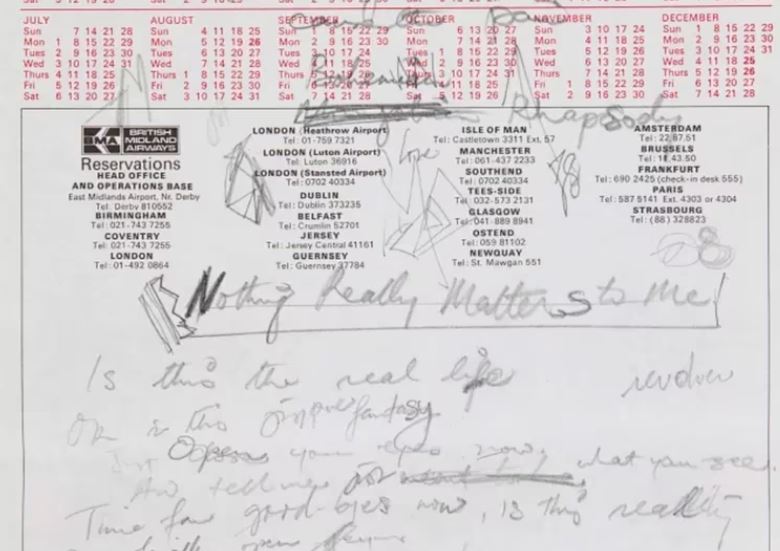 JULY AUGUST SEPTEMBER OCTOBER NOVEMBER DECEMBER
Sun 7 14 21 28 Sun 4 11 18 25 Sun 1 8 15 22 29 Sun 6 13 20 27 Sun 3 10 17 24 Sun 1 8 15 22 29
Mon 1 8 15 22 29 Mon 5 12 19 26 Mon 2 9 16 23 30 Mon 7 14 21 28 Mon 4 11 18 25 Mon 2 9 16 23 30
Tues 2 9 16 23 30 Tues 6 13 20 27 Tues 3 10 17 24 Tues 1 8 15 22 29 Tues 5 12 19 26 Tues 3 10 17 24 31
Wed 3 10 17 24 31 Wed 7 14 21 28 Wed Wed 2 9 16 23 30 Wed 6 13 20 27 Wed 4 11 18 25
Thurs 4 11 18 25 Thurs 1 8 15 22 29 Thurs 3 10 17 24 31 Thurs 7 14 21 28 Thurs 5 12 19 26
Fri 5 12 19 26 Fri 2 9 16 23 30 Fri 6 13 20 27 Fri 4 11 18 25 Fri 1 8 15 22 29 Fri 6 13 20 27
Sat 6 13 20 27 Sat 3 10 17 24 31 Sat 7 14 21 28 Sat 5 12 19 26 Sat 2 9 16 23 30 Sat 7 14 21 28
Bohemian
Rhapsody
BMA BRITISH MIDLAND AIRWAYS
Reservations
HEAD OFFICE
AND OPERATIONS BASE
East Midlands Airport, Nr. Derby
Tel. Derby 810552
BIRMINGHAM
Tel: 021-743 7255
COVENTRY
Tel: 021-743 7255
LONDON
Tel: 01-492 0864
LONDON (Heathrow Airport)
Tel: 01-759 7321
LONDON (Luton Airport)
Tel: Luton 36916
LONDON (Stansted Airport)
Tel: 0702 40334
DUBLIN
Tel: Dublin 373235
BELFAST
Tel: Crumlin 52701
JERSEY
Tel: Jersey Central 41161
GUERNSEY
Tel: Guernsey 37784
ISLE OF MAN
Tel: Castletown 3311 Ext. 57
MANCHESTER
Tel: 061-437 2233
SOUTHEND
Tel: 0702 40334
TEES-SIDE
Tel: 032-573 2131
GLASGOW
Tel: 041-889 8941
OSTEND
Tel: 059 81102
NEWQUAY
Tel: St. Mawgan 551
AMSTERDAM
Tel: 22.87.51
BRUSSELS
Tel: 18.43.50
FRANKFURT
Tel: 690 2425 (check-in desk 555)
PARIS
Tel: 587 5141 Ext. 4303 or 4304
STRASBOURG
Tel: (88) 328823
Nothing Really Matters to Me!
Is this the real life revolver
Or is this fantasy
your eyes now, what you see
And tell me
Time for good-byes now, is this reality